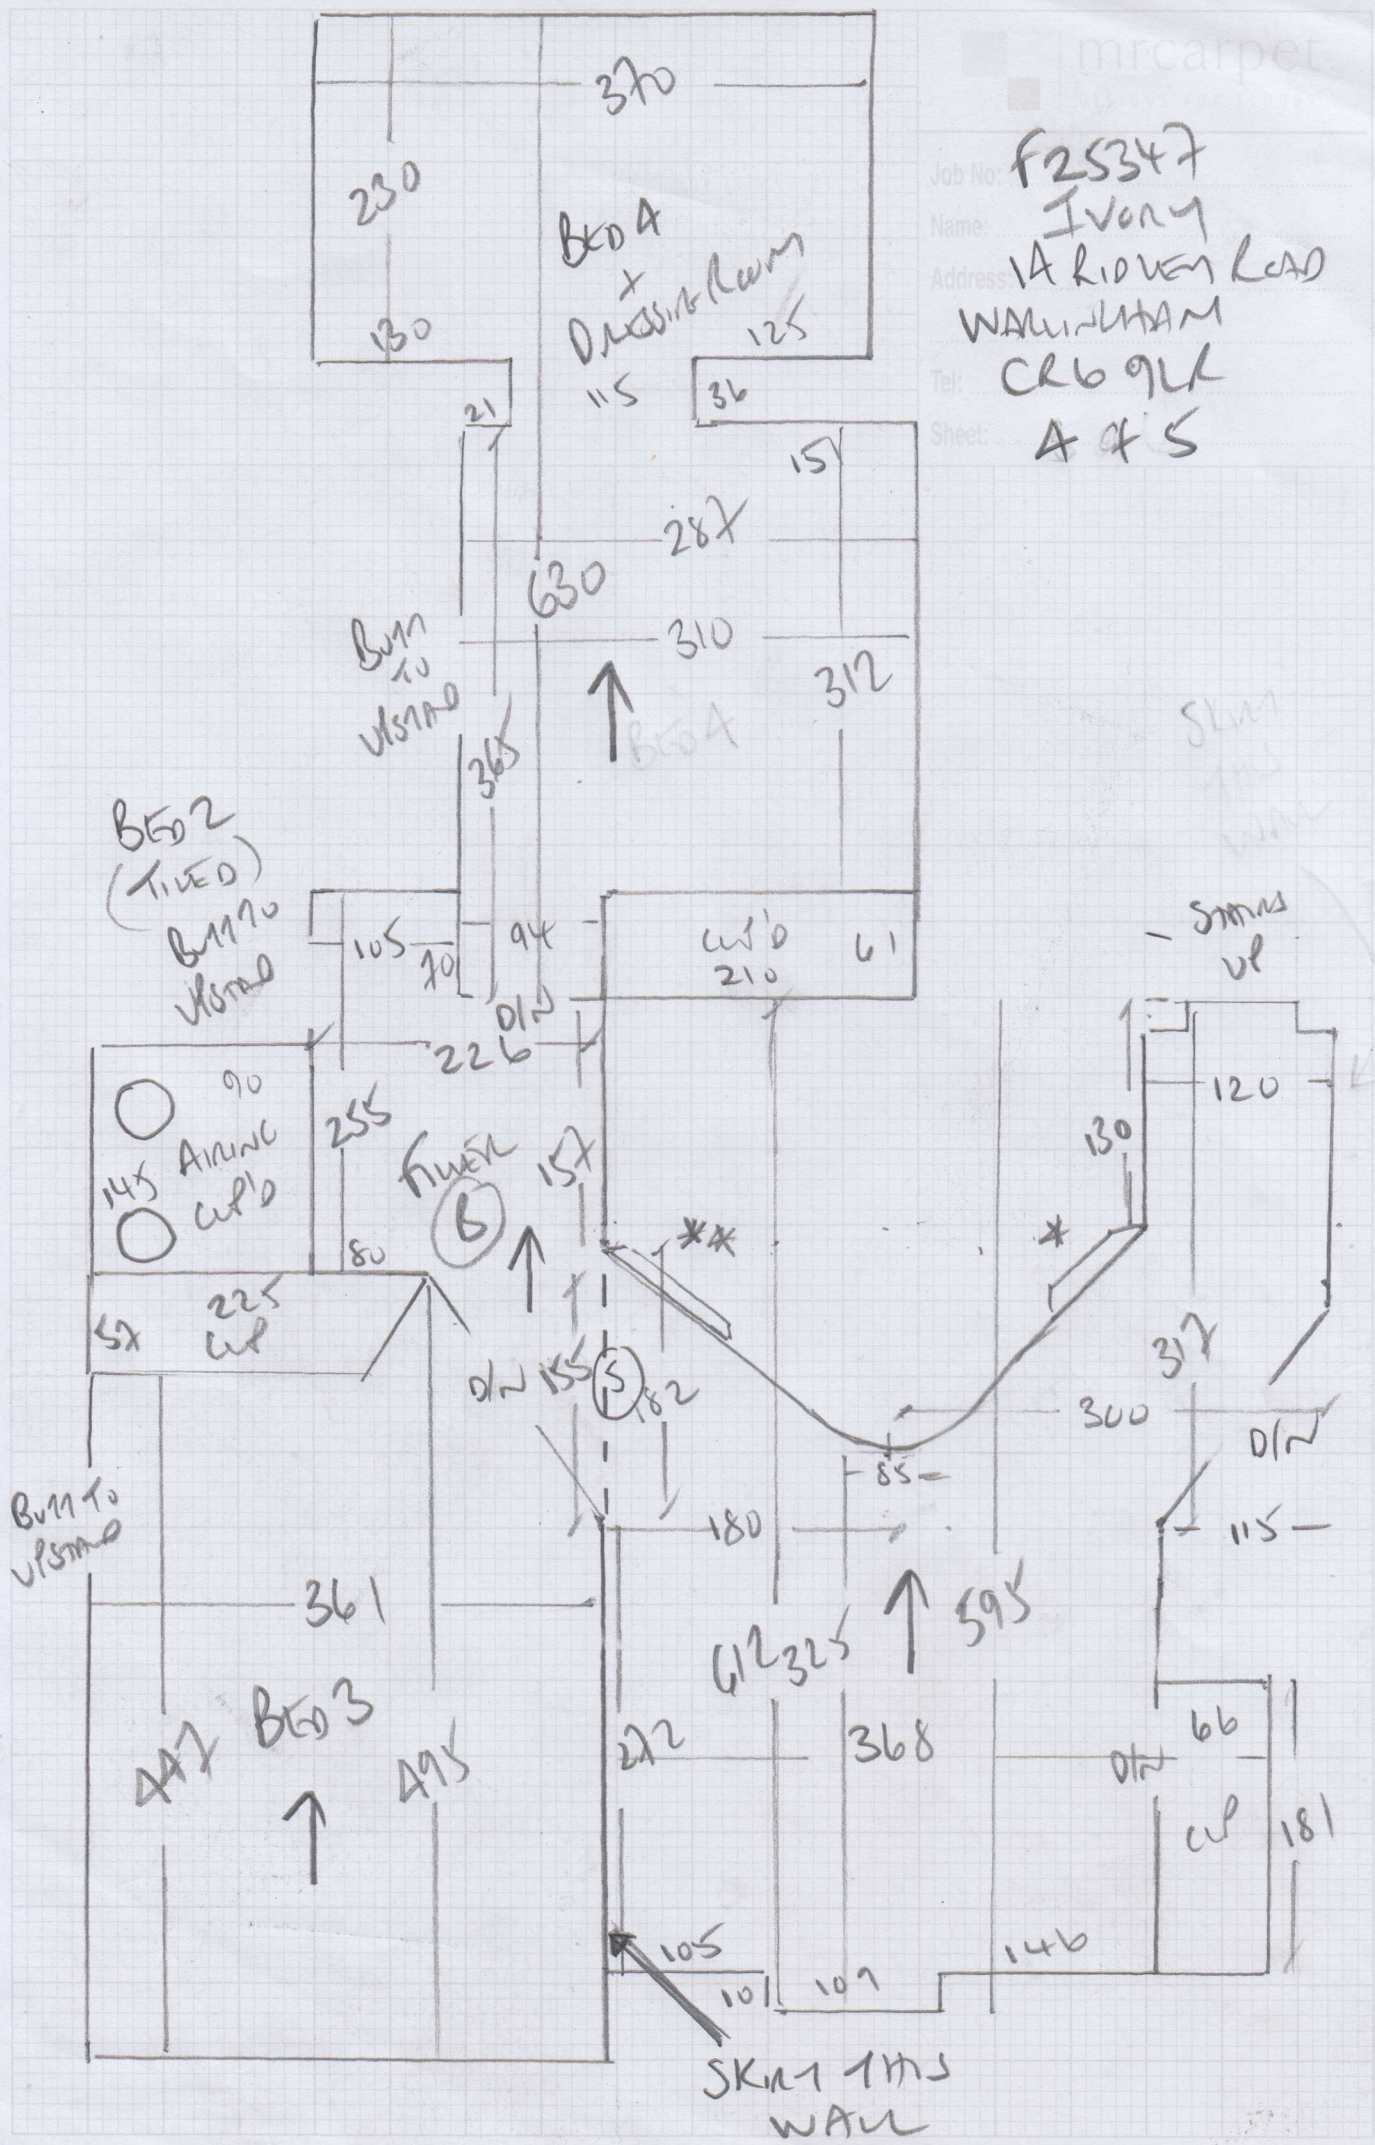 mrcarpet
Job No: F25347
Name: IVORY
Address: 1A RIDLEY ROAD
WARLINGHAM
Tel: CR6 9LR
Sheet: 4 of 5
370
230
BED 4
+
DRESSING ROOM
130
125
115
36
21
15
287
630
BUTT
TO
UPSTAND
310
312
365
BED 4
SKIRT
THIS
WALL
BED 2
(TILED)
BUTT TO
UPSTAND
105
70
94
CUP'D
210
61
STAIRS
UP
D/N
226
90
AIRING
CUP'D
145
255
FILLER
B
157
80
130
120
**
*
57
225
CUP
D/N
155
S
182
317
300
D/N
85
BUTT TO
UPSTAND
180
115
361
595
612
325
BED 3
447
495
272
368
D/N
66
CUP
181
105
10
109
146
SKIRT THIS
WALL